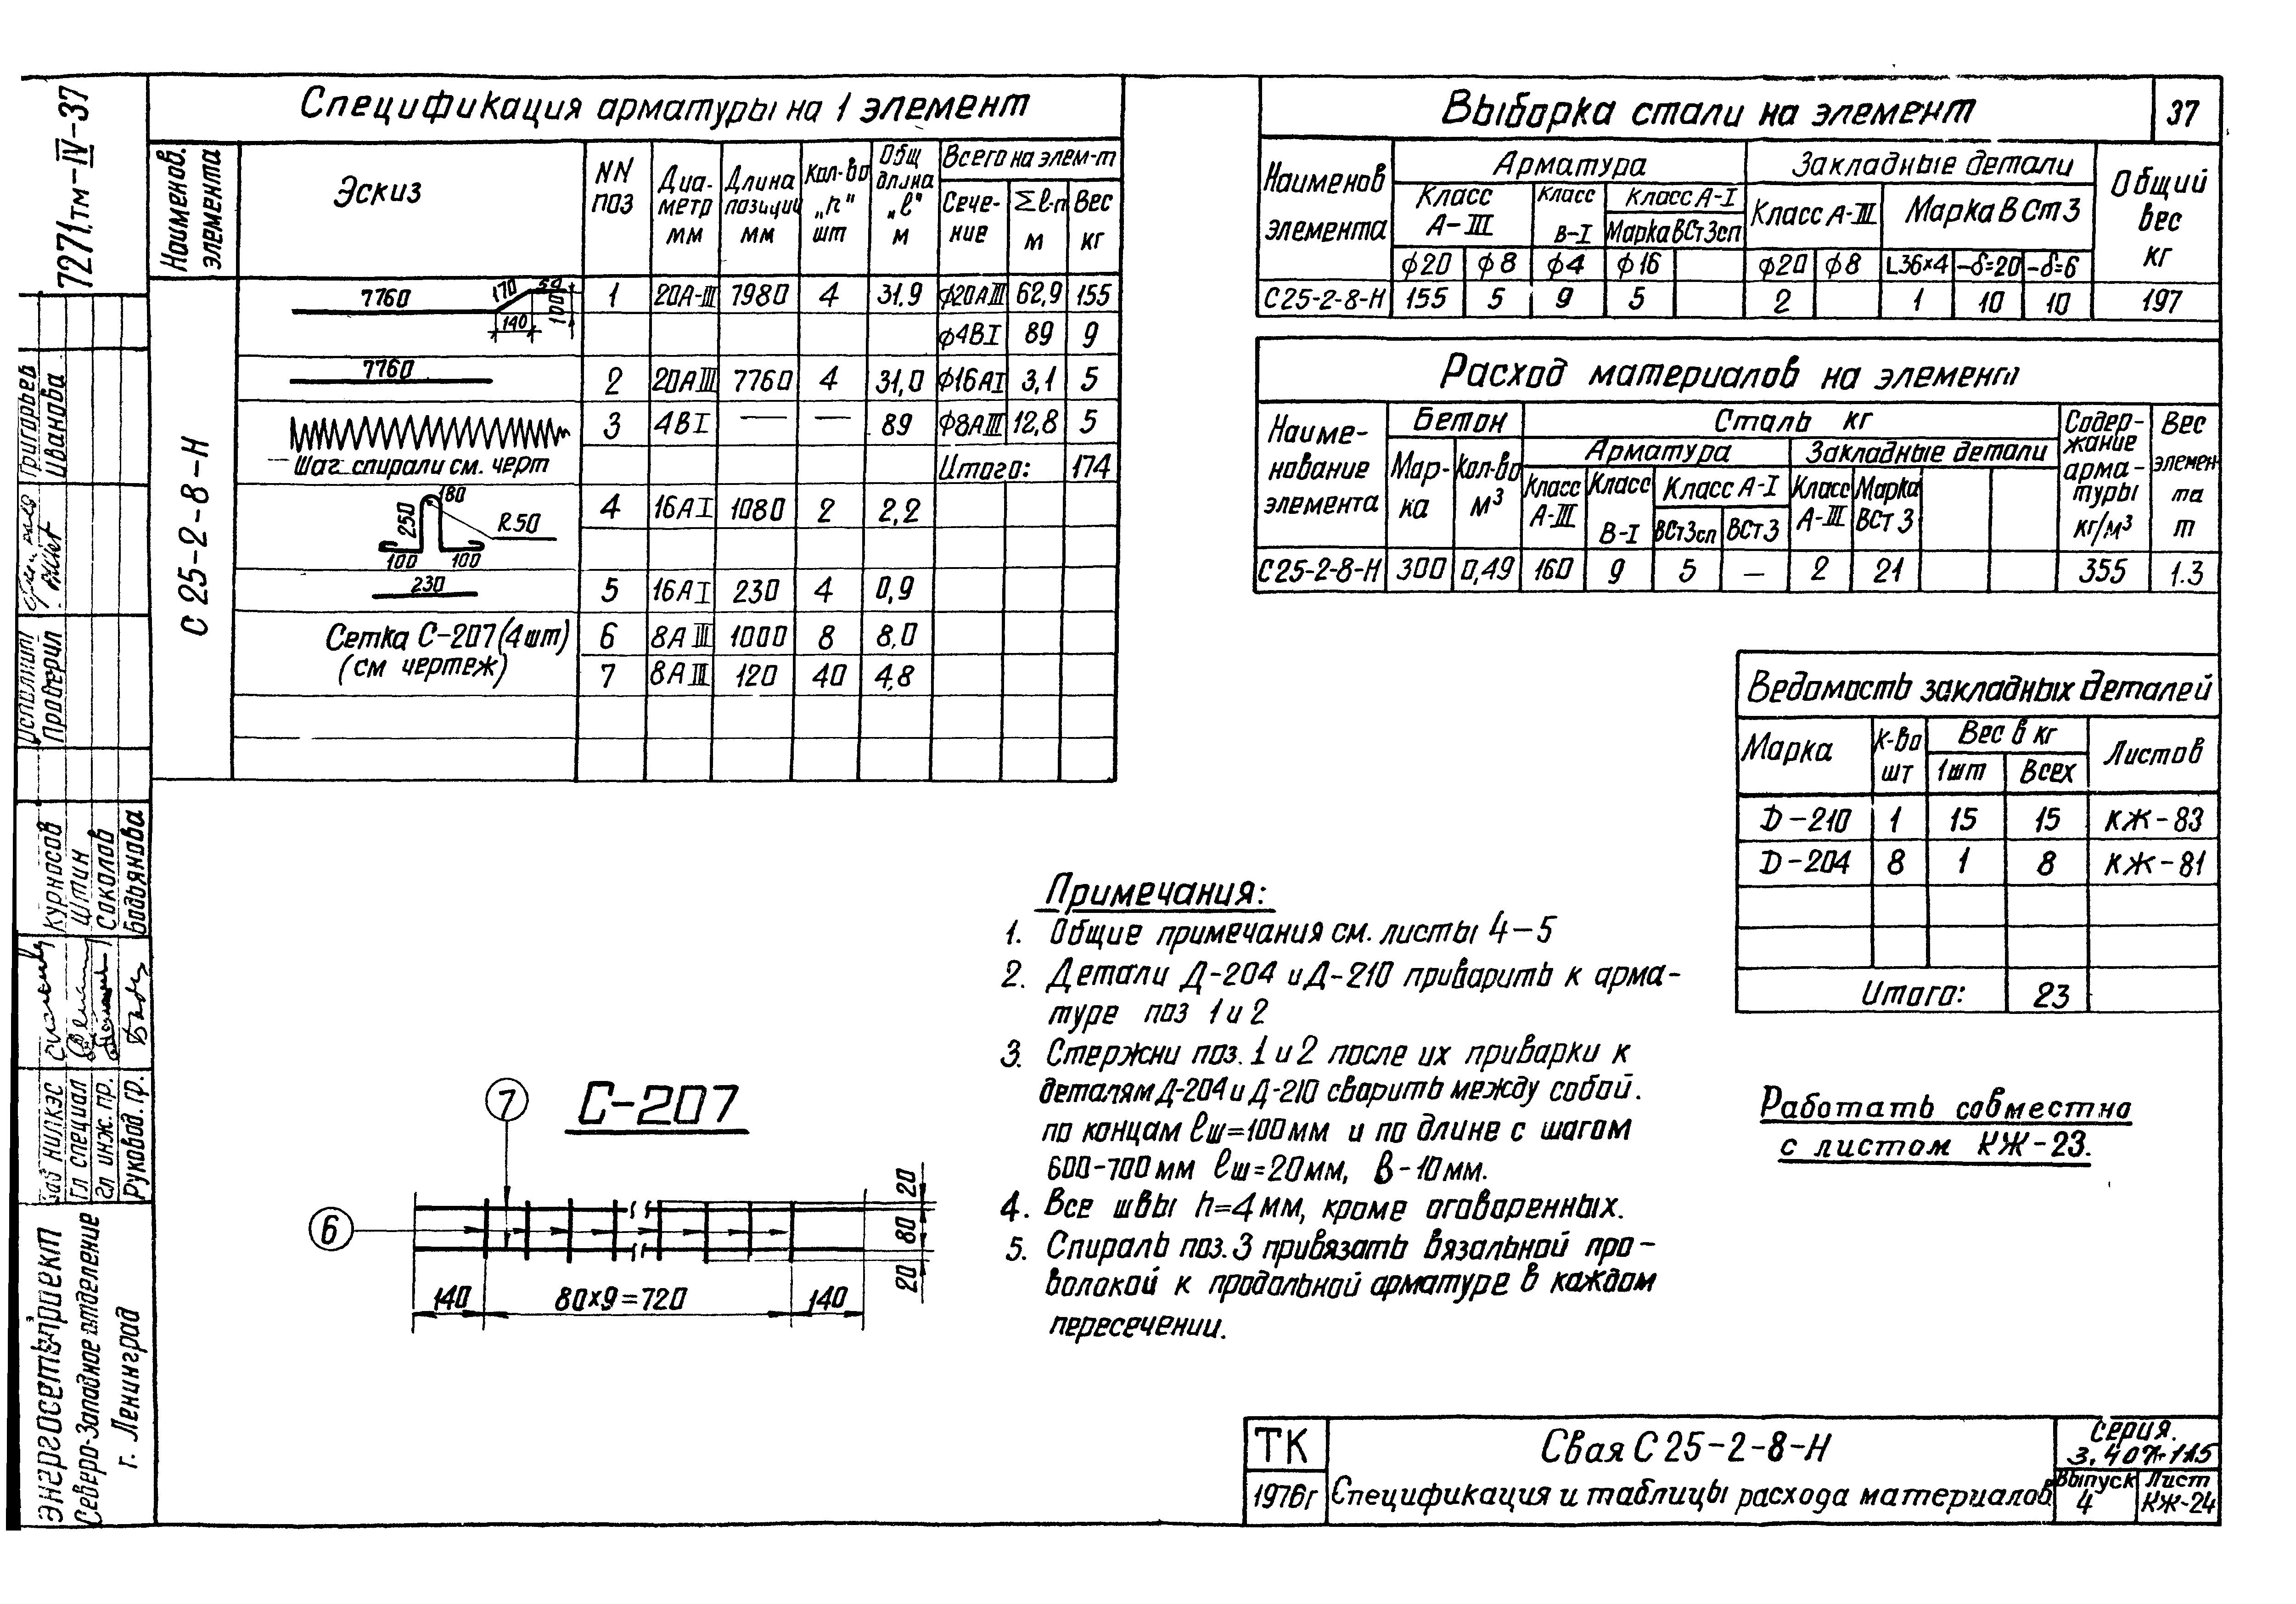 7271.тм-IV-37
Спецификация арматуры на 1 элемент
Наименов. элемента
Эскиз
NN поз
Диаметр мм
Длина позиции мм
Кол-во "n" шт
Общ длина "ℓ" м
Всего на элем-т
Сечение
Σℓ·n м
Вес кг
С 25-2-8-Н
7760 170 50 100 140
1 20А-III 7980 4 31,9 ϕ20АIII 62,9 155
ϕ4ВI 89 9
7760
2 20АIII 7760 4 31,0 ϕ16АI 3,1 5
3 4ВI — — 89 ϕ8АIII 12,8 5
Шаг спирали см. черт
Итого: 174
180 250 R50 100 100
4 16АI 1080 2 2,2
230
5 16АI 230 4 0,9
Сетка С-207 (4 шт)
(см чертеж)
6 8АIII 1000 8 8,0
7 8АIII 120 40 4,8
Выборка стали на элемент
37
Наименов элемента
Арматура
Закладные детали
Общий вес кг
Класс А-III
Класс В-I
Класс А-I
Марка ВСт3сп
Класс А-III
Марка ВСт3
ϕ20 ϕ8 ϕ4 ϕ16 ϕ20 ϕ8 L36×4 -δ=20 -δ=6
С25-2-8-Н 155 5 9 5 2 1 10 10 197
Расход материалов на элемент
Наименование элемента
Бетон
Сталь кг
Содержание арматуры кг/м³
Вес элемента т
Марка
Кол-во м³
Арматура
Закладные детали
Класс А-III
Класс В-I
Класс А-I
ВСт3сп
ВСт3
Класс А-III
Марка ВСт3
С25-2-8-Н 300 0,49 160 9 5 — 2 21 355 1.3
Ведомость закладных деталей
Марка
К-во шт
Вес в кг
1шт
Всех
Листов
Д-210 1 15 15 КЖ-83
Д-204 8 1 8 КЖ-81
Итого: 23
Примечания:
1. Общие примечания см. листы 4-5
2. Детали Д-204 и Д-210 приварить к арма-
туре поз 1 и 2
3. Стержни поз. 1 и 2 после их приварки к
деталям Д-204 и Д-210 сварить между собой.
по концам ℓш=100мм и по длине с шагом
600-700мм ℓш=20мм, в-10мм.
4. Все швы h=4мм, кроме оговоренных.
5. Спираль поз. 3 привязать вязальной про-
волокой к продольной арматуре в каждом
пересечении.
Работать совместно
с листом КЖ-23.
С-207
7
6
20
80
20
140 80×9=720 140
ТК
1976г
Свая С 25-2-8-Н
Спецификация и таблицы расхода материалов
серия.
3.407-115
Выпуск 4
Лист КЖ-24
Григорьев
Иванова
Исполнил
Проверил
Курносов
Штин
Соколов
Бодьянова
Зав НИЛКЭС
Гл специал
Гл инж. пр.
Руковод. гр.
Энергосетьпроект
Северо-Западное отделение
г. Ленинград